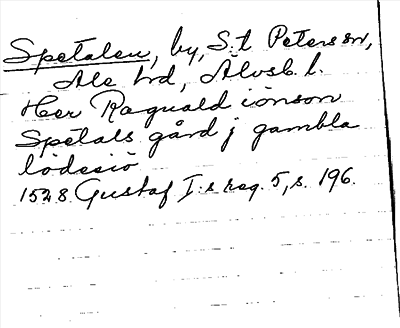 Spetalen, by, S:t Peters sn,
Ale hd, Älvsb. l.
Her Raguald iönson
Spetals gård j gambla
lödesiö
1528 Gustaf I:s reg. 5, s. 196.